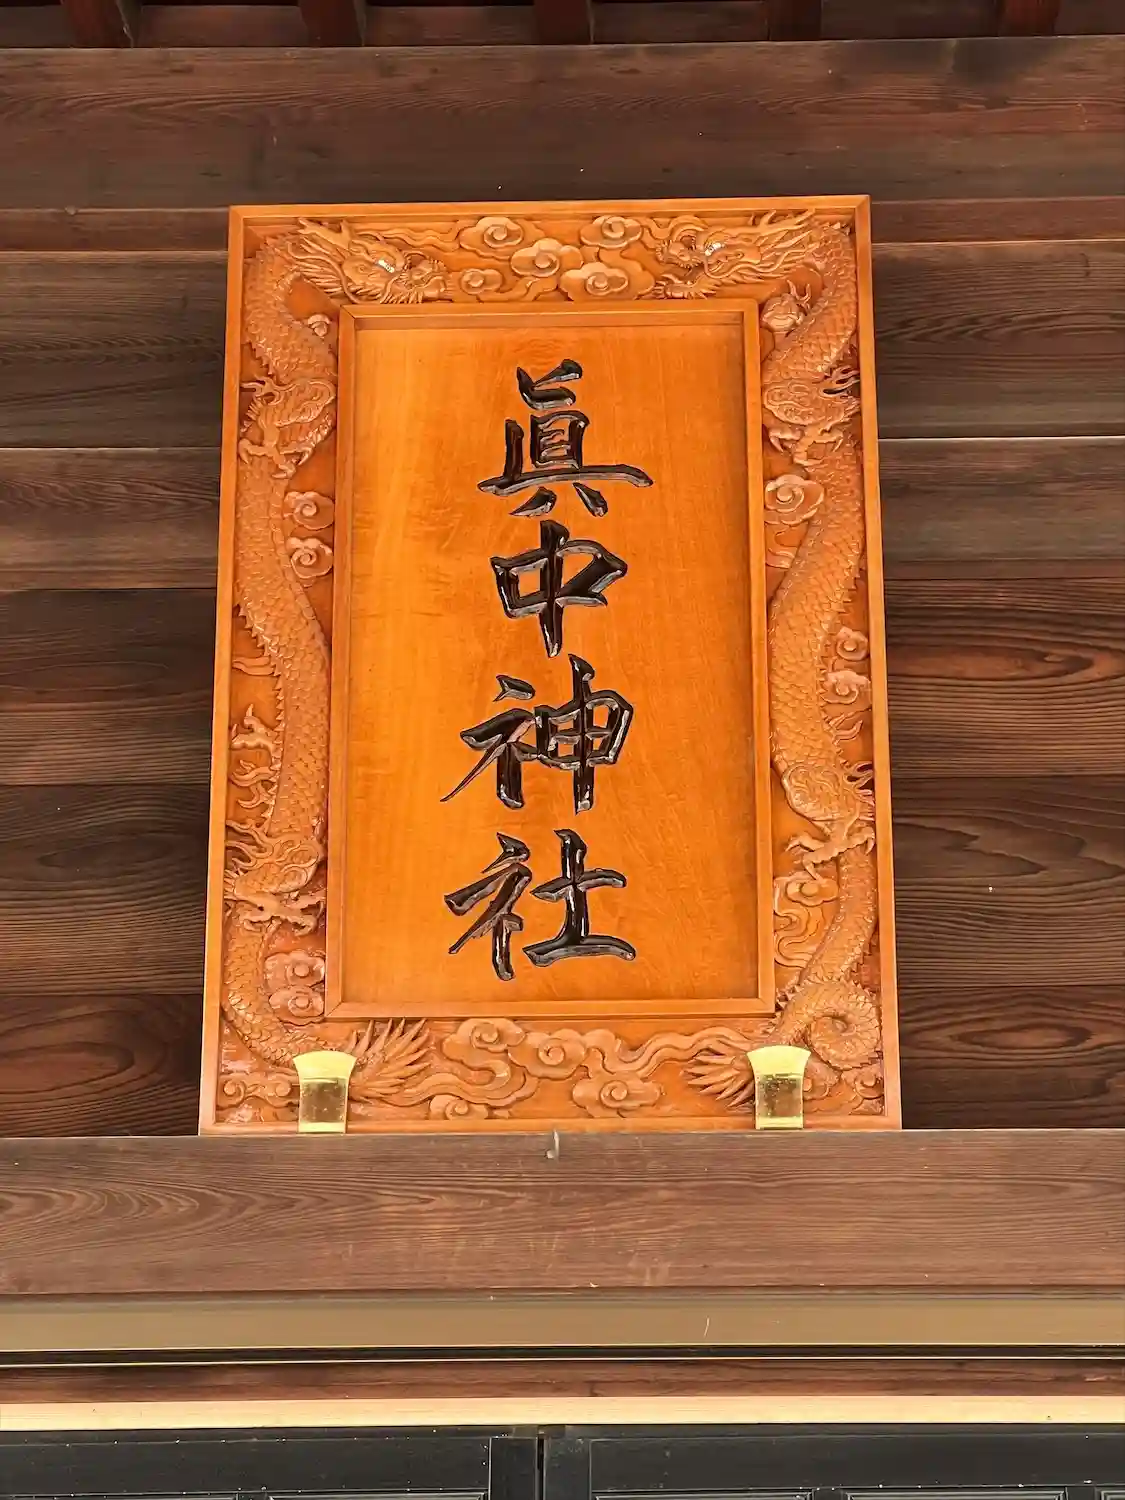 眞中神社